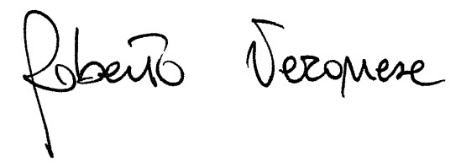 Roberto Veronese